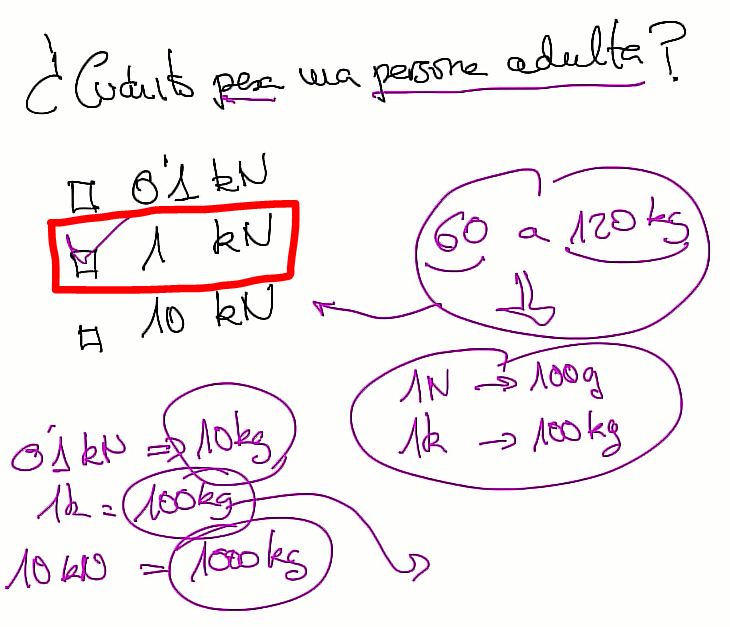 ¿Cuánto pesa una persona adulta?
0'1 kN
1 kN
10 kN
60 a 120 kg
1N → 100g
1k → 100kg
0'1 kN ⇒ 10kg
1k = 100kg
10 kN = 1000 kg